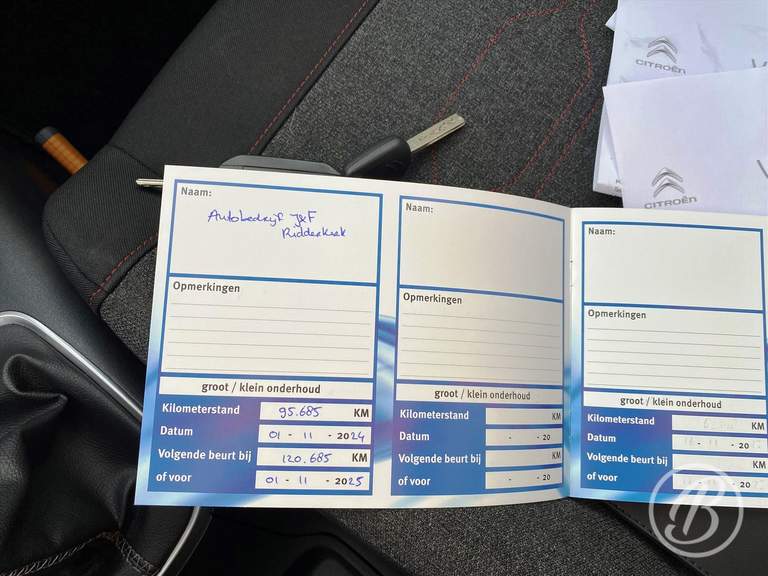 CITROËN
CITROËN
Naam:
Autobedrijf J&F
Ridderkerk
Opmerkingen
groot / klein onderhoud
Kilometerstand 95.685 KM
Datum 01 - 11 - 2024
Volgende beurt bij 120.685 KM
of voor 01 - 11 - 2025
Naam:
Opmerkingen
groot / klein onderhoud
Kilometerstand KM
Datum - - 20
Volgende beurt bij KM
of voor - - 20
Naam:
Opmerkingen
groot / klein onderhoud
Kilometerstand KM
Datum - 11 - 20
Volgende beurt bij KM
of voor - - 20
B